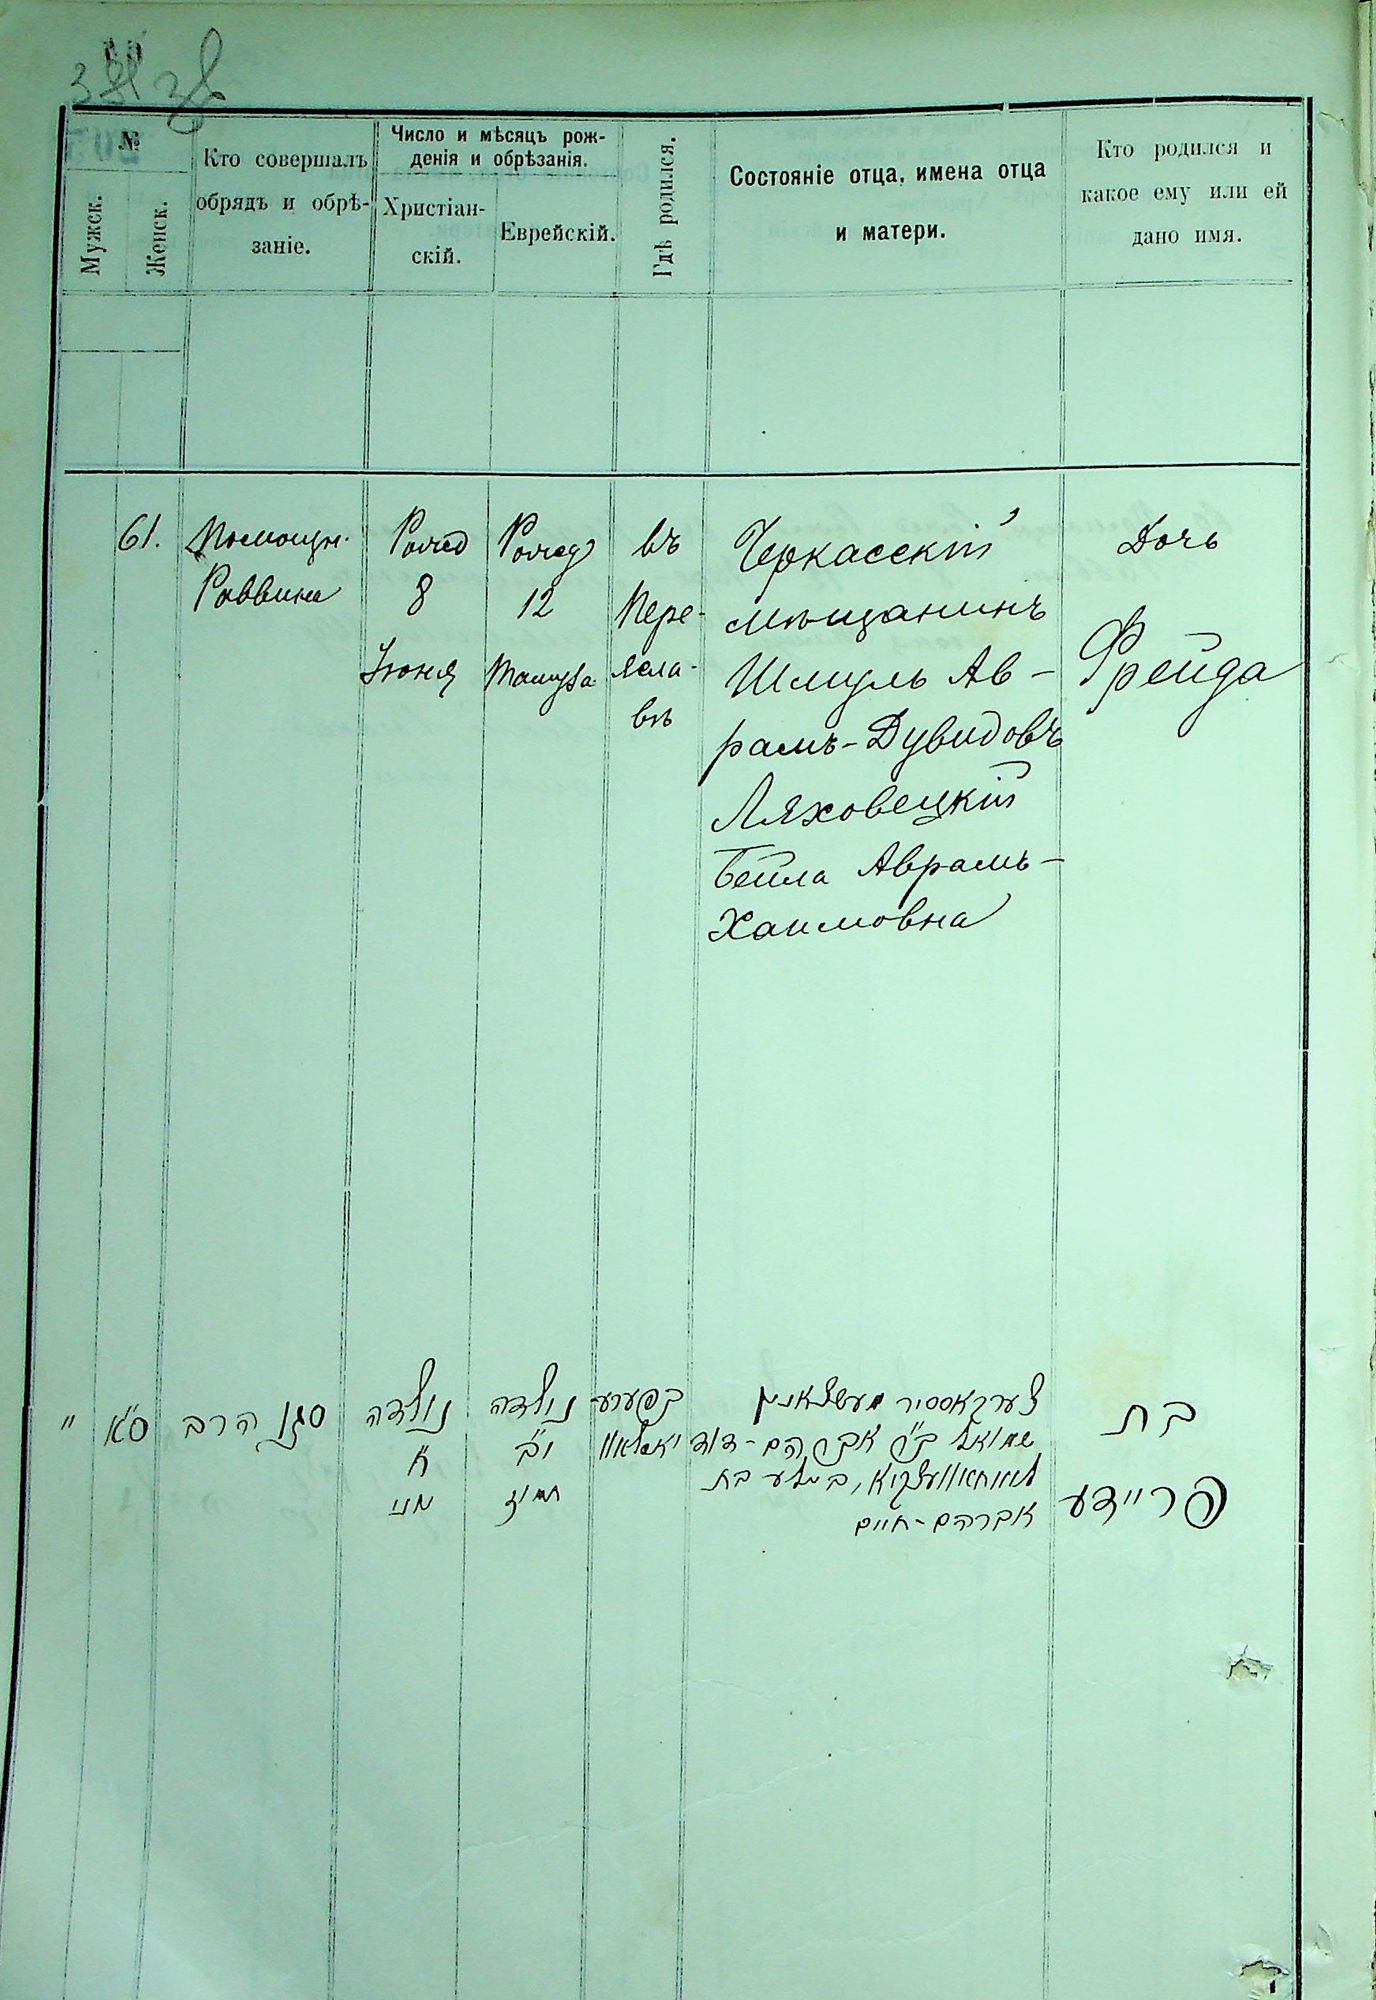 №
Мужск.
Женск.
Кто совершалъ
обрядъ и обрѣ-
заніе.
Число и мѣсяцъ рож-
денія и обрѣзанія.
Христіан-
скій.
Еврейскій.
Гдѣ родился.
Состояніе отца, имена отца
и матери.
Кто родился и
какое ему или ей
дано имя.
61.
Помощн.
Раввина
Рожд
8
Іюня
Рожд
12
Тамуза
въ
Пере-
ясла-
вѣ
Черкасскій
мѣщанинъ
Шмуль Ав-
рамъ-Дувидовъ
Ляховецкій
Бейла Аврамъ-
Хаимовна
Дочь
Фрейда
"
ס"א
סגן הרב
נולדה
ח'
יוני
נולדה
י"ב
תמוז
בפערע-
יאסלאוו
שמואל ב"ר אברהם-דוד
אברהם-חיים
בת
פריידע